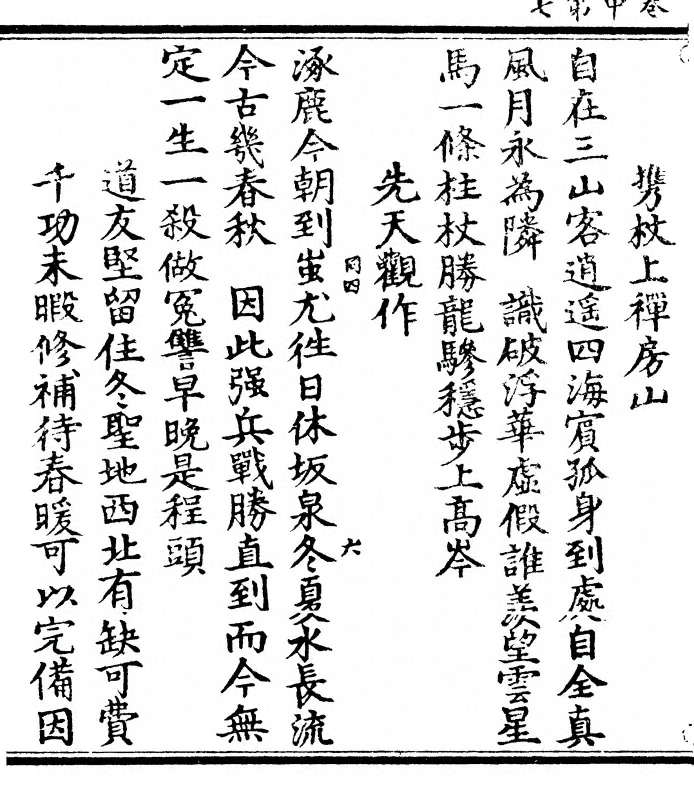 卷中第七
携杖上禪房山
自在三山客逍遥四海賔孤身到處自全真
風月永為隣　識破浮華虚假誰羡望雲星
馬一條柱杖勝龍驂穩步上高岑
先天觀作
同四
六
涿鹿今朝到蚩尤徃日休坂泉冬夏水長流
今古幾春秋　因此强兵戰勝直到而今無
定一生一殺做寃讐早晚是程頭
道友堅留住冬聖地西北有缺可費
千功未暇修補待春暖可以完備因